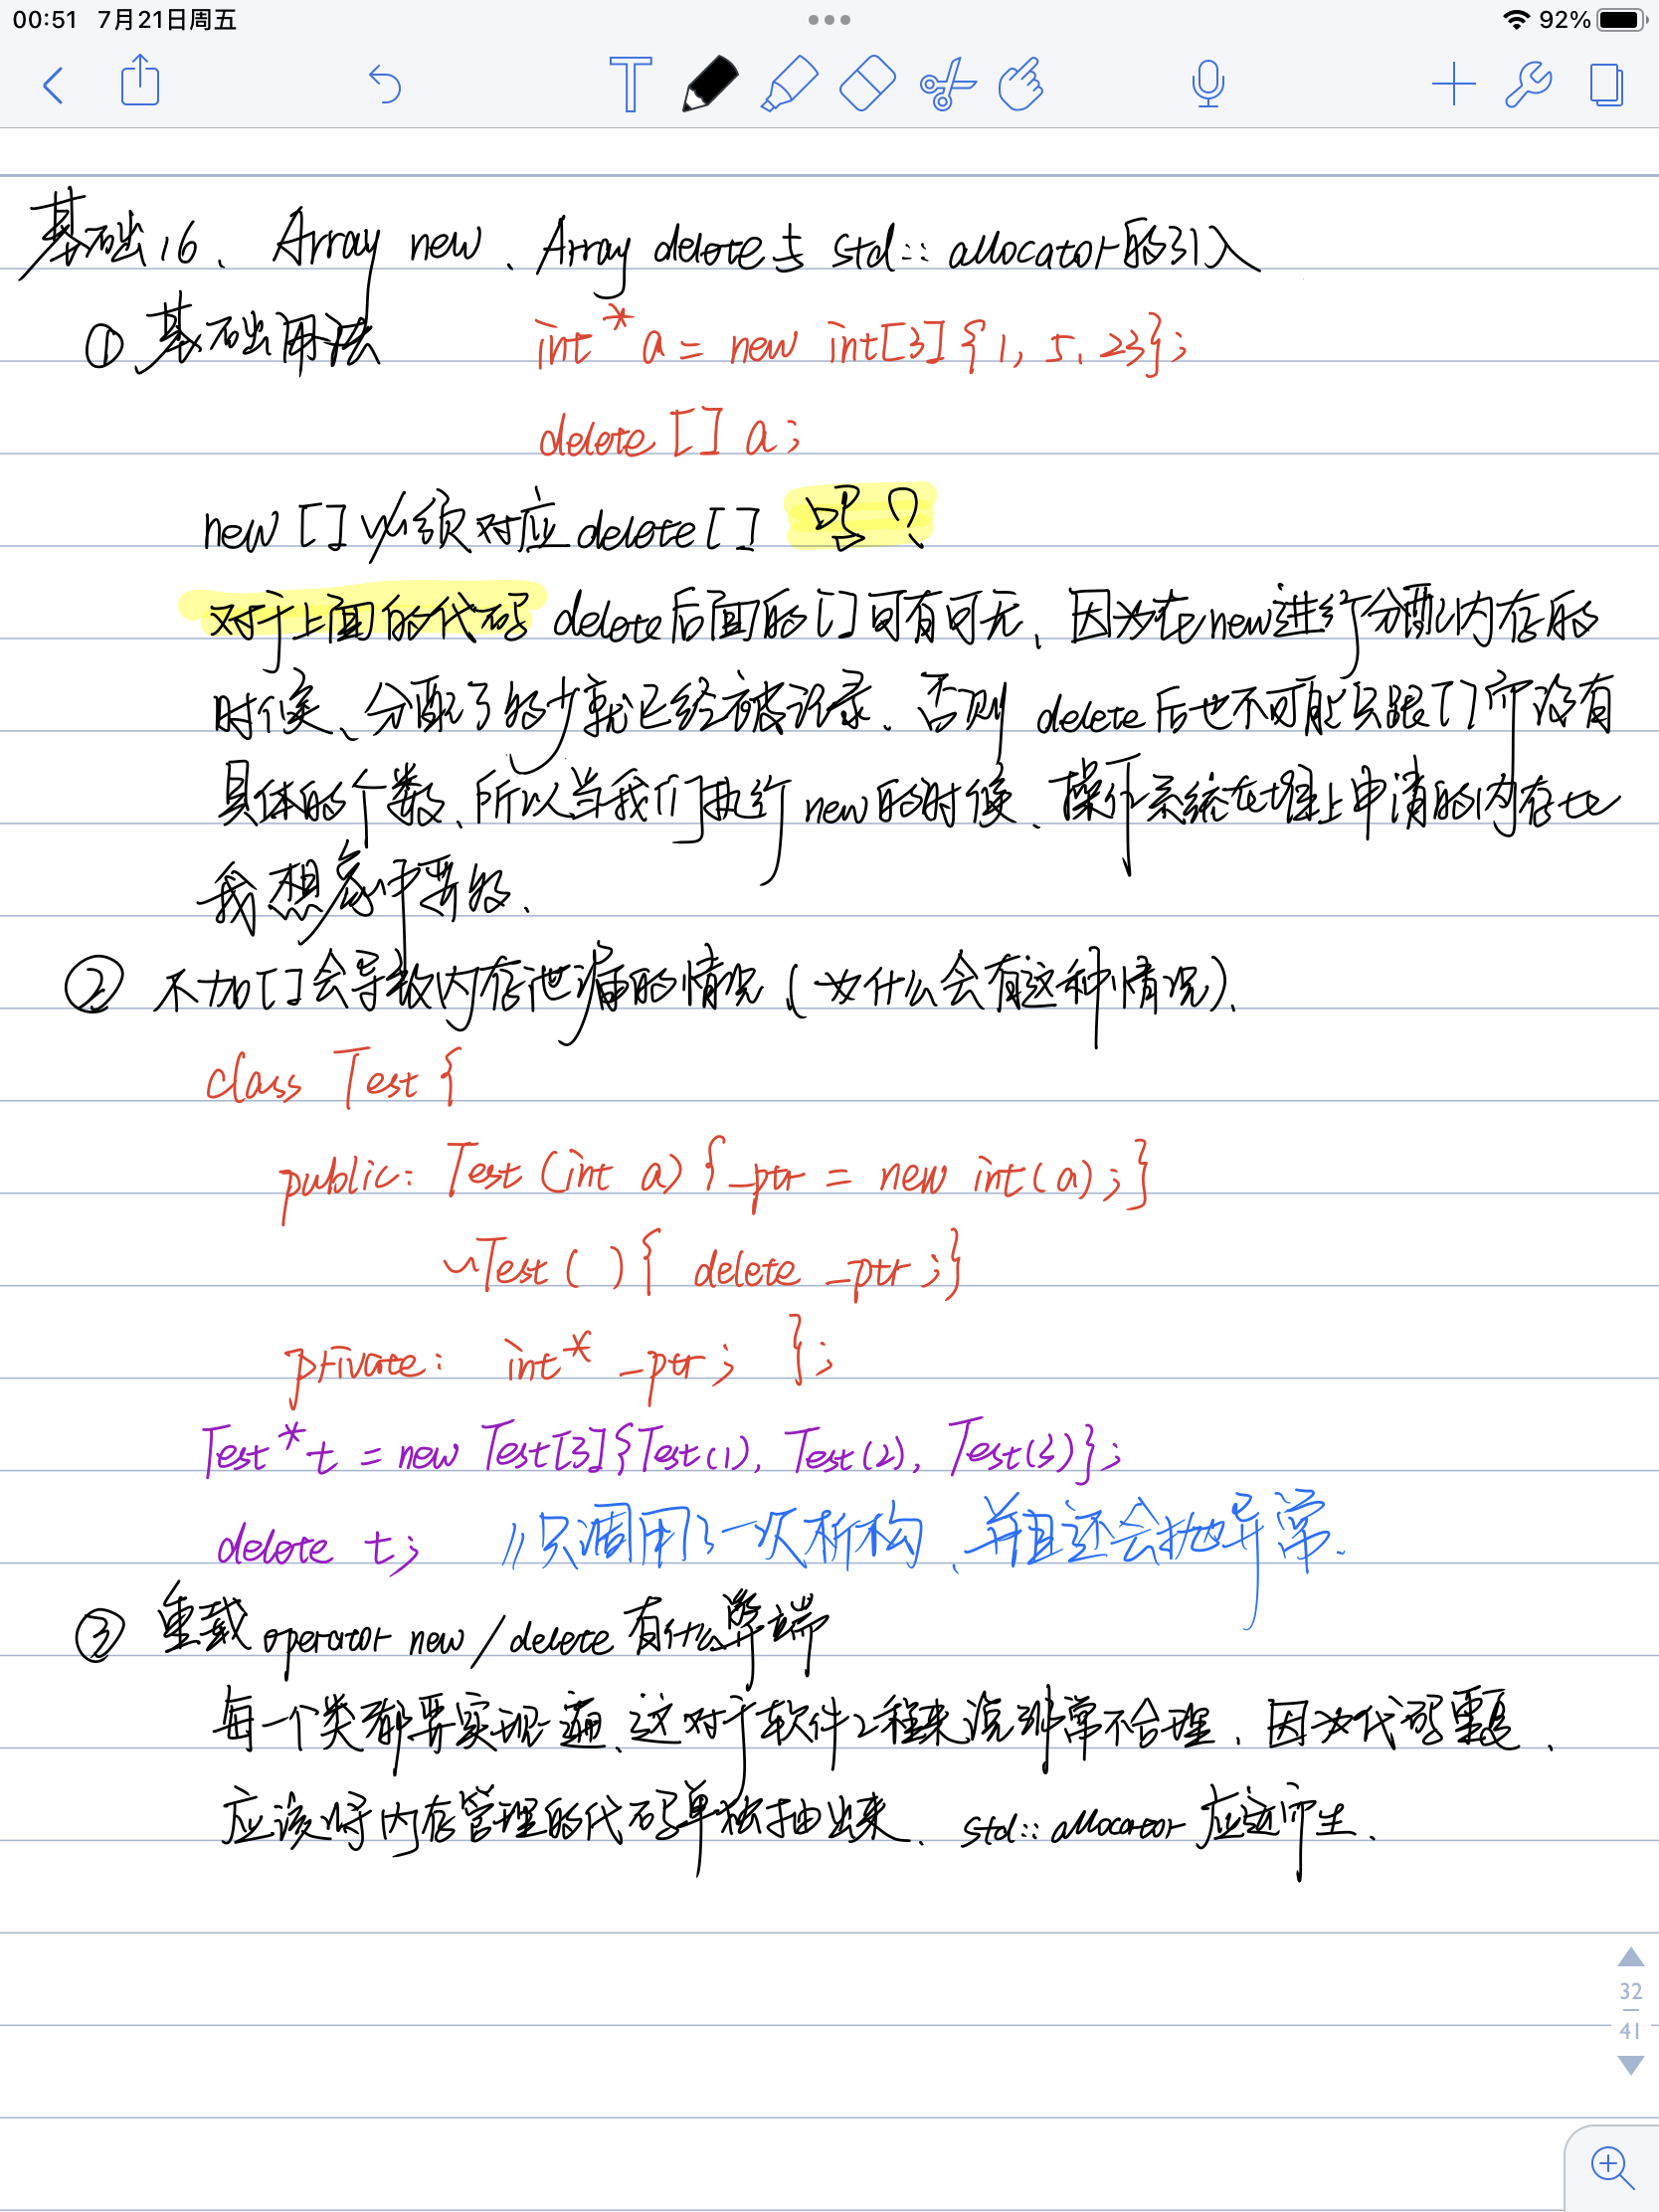 00:51 7月21日周五
92%
基础16、Array new、Array delete与 std::allocator的引入
① 基础用法 int* a = new int[3]{1, 5, 23};
delete [] a;
new []必须对应delete[] 吗？
对于上面的代码 delete后面的[]可有可无、因为在new进行分配内存的
时候、分配了的多少就已经被记录、否则 delete后也不可能只跟[]而没有
具体的个数、所以当我们执行new的时候、操作系统在堆上申请的内存比
我想象中要多.
② 不加[]会导致内存泄漏的情况(为什么会有这种情况).
class Test {
public: Test (int a) {_ptr = new int(a);}
~Test ( ) { delete _ptr ;}
private: int* _ptr ; };
Test* t = new Test[3]{Test(1), Test(2), Test(3)};
delete t; //只调用了一次析构、并且还会抛异常.
③ 重载 operator new/delete 有什么弊端
每一个类都要实现一遍、这对于软件工程来说非常不合理、因为代码重复、
应该将内存管理的代码单独抽出来、std::allocator 应运而生.
32
41